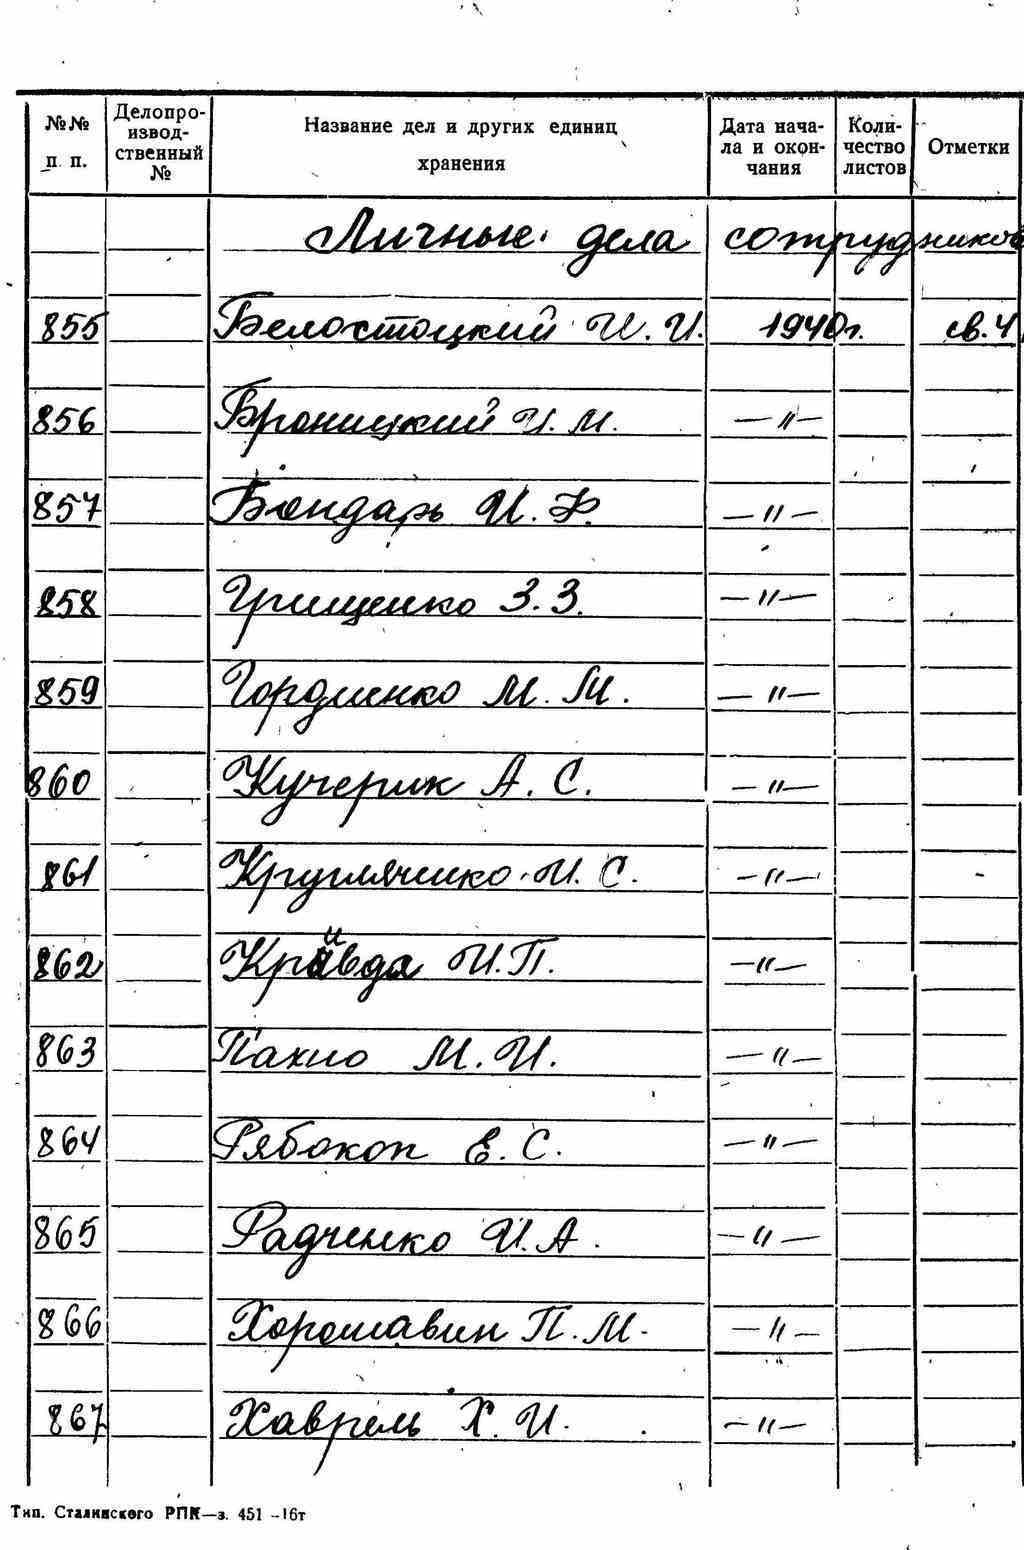 №№ п. п. Делопроизводственный № Название дел и других единиц хранения Дата начала и окончания Количество листов Отметки
Личные дела сотрудников
855 Белостоцкий И. И. 1940г. св. 4
856 Броницкий И. М. —〃—
857 Бондарь И. Ф. —〃—
858 Грищенко З. З. —〃—
859 Гордиенко М. М. —〃—
860 Кучерик А. С. —〃—
861 Кругляченко И. С. —〃—
862 Кривда И. П. —〃—
863 Пахно М. И. —〃—
864 Рябокоп Е. С. —〃—
865 Радченко И. А. —〃—
866 Хорошавин П. М. —〃—
867 Хаврель Х. И. —〃—
Тип. Сталинского РПК—з. 451 -16т